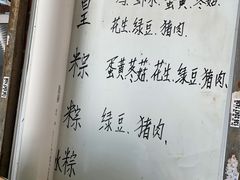 皇
花生.绿豆.猪肉.
粽 蛋黄.冬菇.花生.绿豆.猪肉.
粽 绿豆.猪肉.
粽